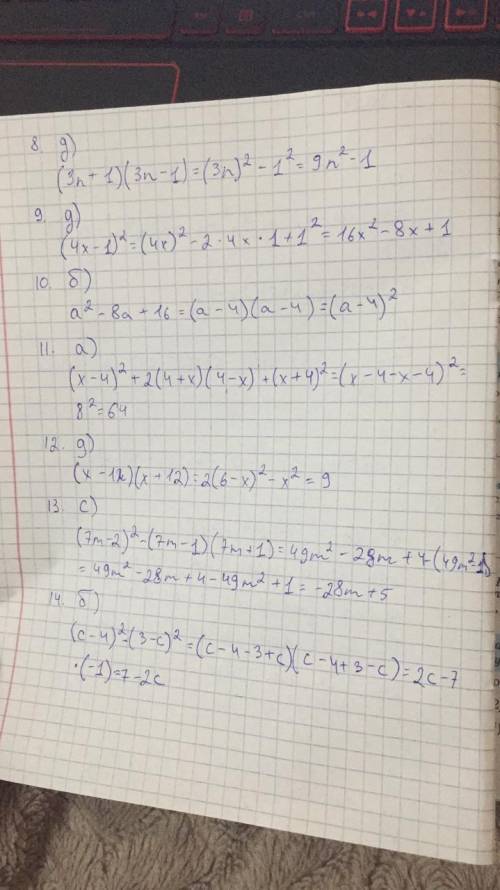 8. д)
(3n+1)(3n-1)=(3n)²-1²=9n²-1
9. д)
(4x-1)²=(4x)²-2·4x·1+1²=16x²-8x+1
10. б)
a²-8a+16=(a-4)(a-4)=(a-4)²
11. а)
(x-4)²+2(4+x)(4-x)+(x+4)²=(x-4-x-4)²=
8²=64
12. д)
(x-12)(x+12)=2(6-x)²-x²=9
13. с)
(7m-2)²-(7m-1)(7m+1)=49m²-28m+4-(49m²-1)
=49m²-28m+4-49m²+1=-28m+5
14. б)
(c-4)²-(3-c)²=(c-4-3+c)(c-4+3-c)=2c-7
·(-1)=7-2c